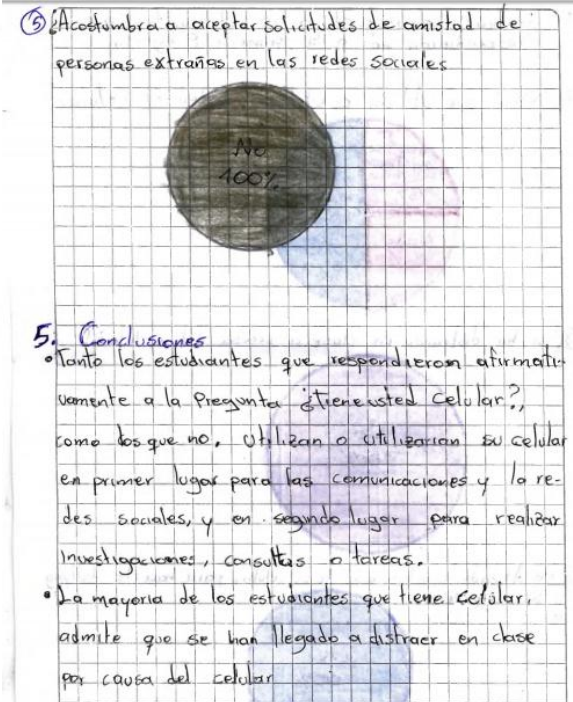 ⑤ ¿Acostumbra a aceptar solicitudes de amistad de
personas extrañas en las redes sociales
No
100%
5. Conclusiones
• Tanto los estudiantes que respondieron afirmati-
vamente a la Pregunta ¿tiene usted Celular?,
como los que no, utilizan o utilizarian su celular
en primer lugar para las comunicaciones y la re-
des sociales, y en segundo lugar para realizar
investigaciones, consultas o tareas.
• La mayoria de los estudiantes que tiene celular,
admite que se han llegado a distraer en clase
por causa del celular